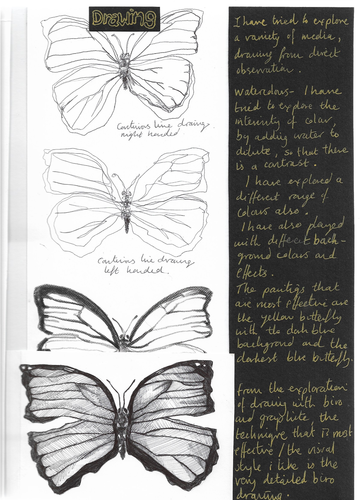 Drawing
Continious line drawing,
right handed
Continius line drawing
left handed.
I have tried to explore
a variety of media,
drawing from direct
observation.
Watercolours- I have
tried to explore the
intensity of colour,
by adding water to
dilute, so that there
is a contrast.
I have explored a
different range of
colours also.
I have also played
with different back-
ground colours and
effects.
The paintings that
are most effective are
the yellow butterfly
with the dark blue
background and the
darkest blue butterfly.
From the exploration
of drawing with biro
and graphite the
technique that is most
effective / the visual
style i like is the
very detailed biro
drawing.